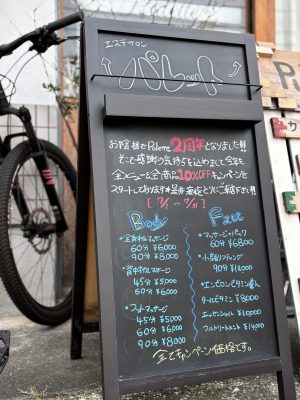 エステサロン
パレット
お陰様でPalette 2周年となりました!!
そこで感謝の気持ちを込めまして今年も
全メニュー全商品10%OFFキャンペーンを
スタートしております
Body
全身オイルマッサージ
60分 ¥6000
90分 8000
背中オイルマッサージ
45分 ¥5000
60分 ¥6,000
フットマッサージ
45分 ¥5000
60分 ¥6000
90分 ¥8000
Face
マッサージ+パック
60分 ¥6800
小顔リフティング
90分 12000
エッセンシャル ¥10000
フルトリートメント ¥14,000
全てキャンペーン価格です。